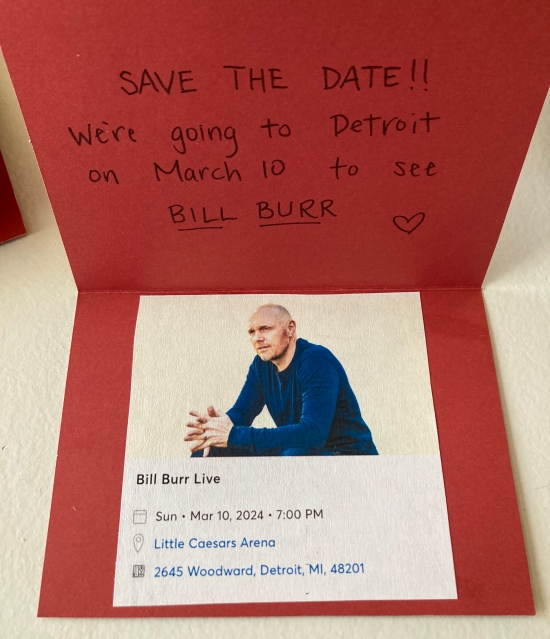 SAVE THE DATE!!
We're going to Detroit
on March 10 to see
BILL BURR
Bill Burr Live
Sun • Mar 10, 2024 • 7:00 PM
Little Caesars Arena
2645 Woodward, Detroit, MI, 48201